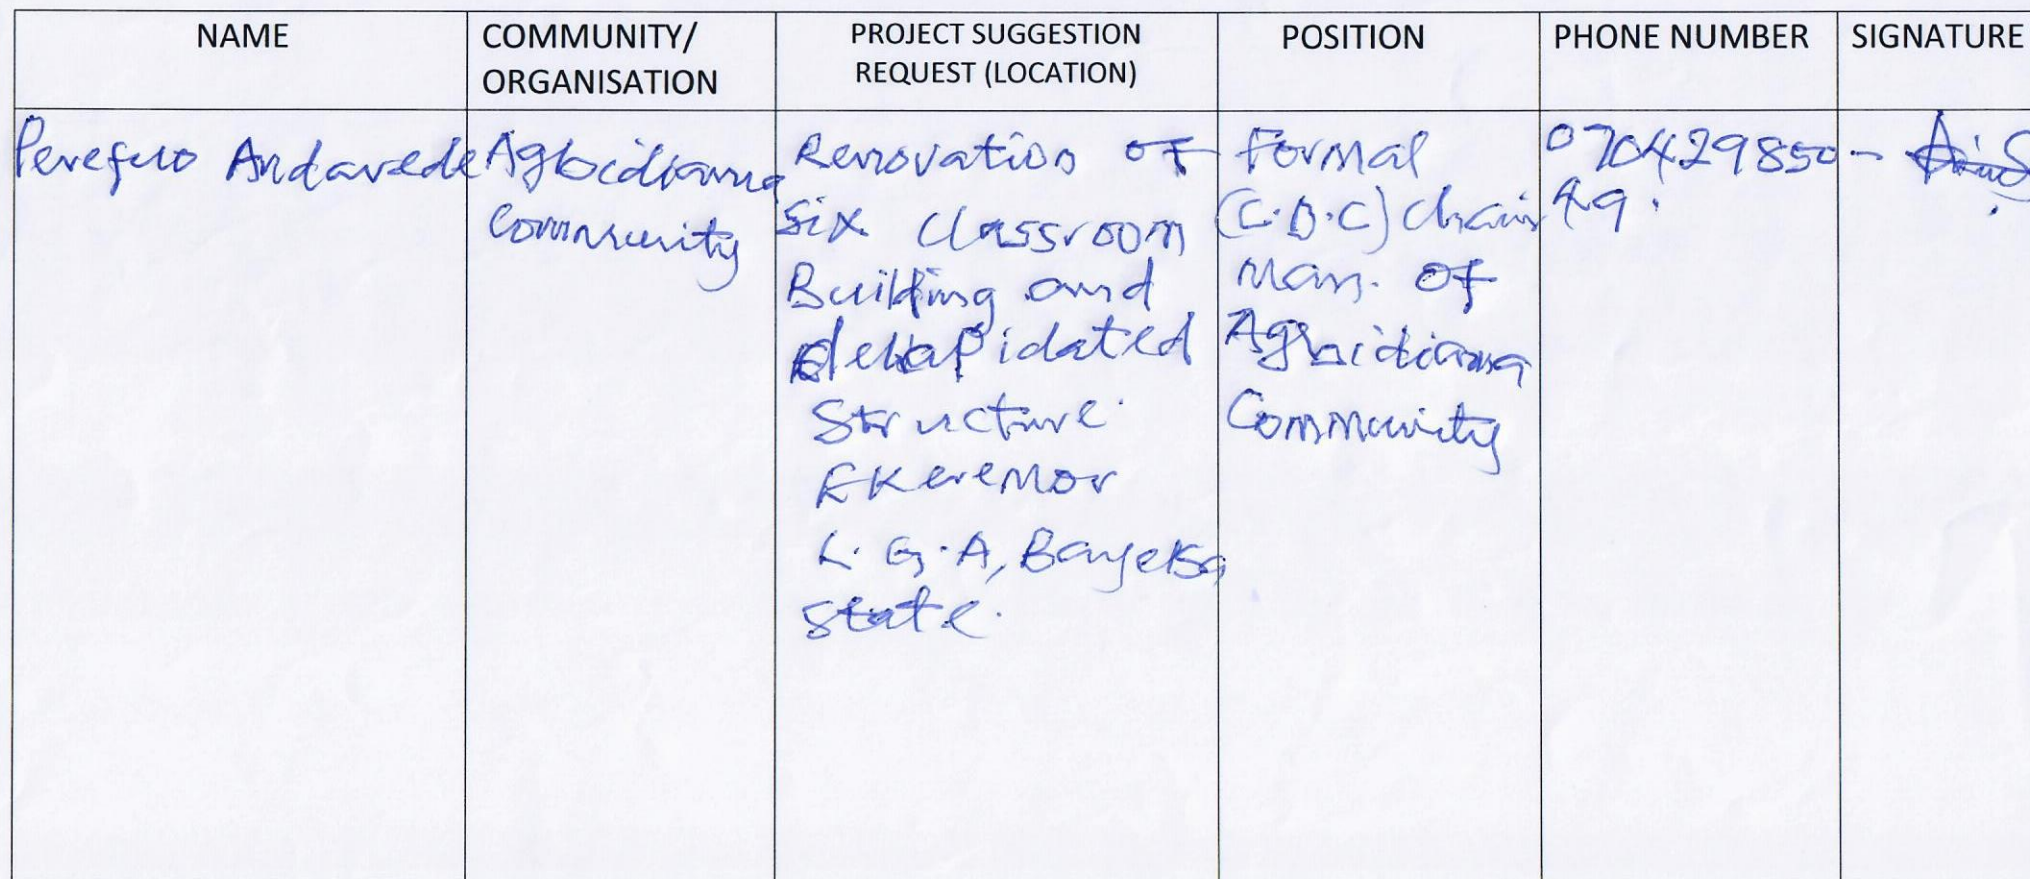 NAME
COMMUNITY/
ORGANISATION
PROJECT SUGGESTION
REQUEST (LOCATION)
POSITION
PHONE NUMBER
SIGNATURE
Andavede
Community
Renovation of
Six Classroom
Building and
delapidated
Structure.
Ekeremor
L.G.A, Bayelsa
State.
Formal
(C.D.C) Chair
Man. of
Agbidiama
Community
070429850-
49.